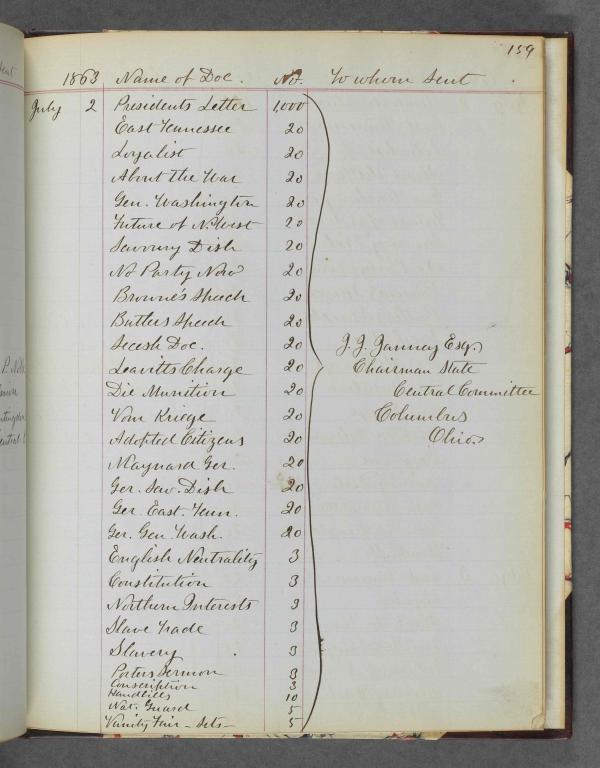 159
1863 Name of Doc. No. To whom Sent
July 2 Presidents Letter 1,000
East Tennessee 20
Loyalist 20
About the War 20
Gen. Washington 20
Future of N. West 20
Savoury Dish 20
No Party Now 20
Browne's Speech 20
Butlers Speech 20
Secesh Doc. 20 J. J. Janney Esq.
Leavitts Charge 20 Chairman State
Die Munition 20 Central Committee
Vom Kriege 20 Columbus
Adopted Citizens 20 Ohio
Maynard Ger. 20
Ger. Sav. Dish 20
Ger. East. Tenn. 20
Ger. Gen. Wash. 20
English Neutrality 3
Constitution 3
Northern Interests 3
Slave Trade 3
Slavery 3
Porters Sermon 3
Conscription 3
Handbills 10
Nat. Guard 5
Vanity Fair - Sets - 5